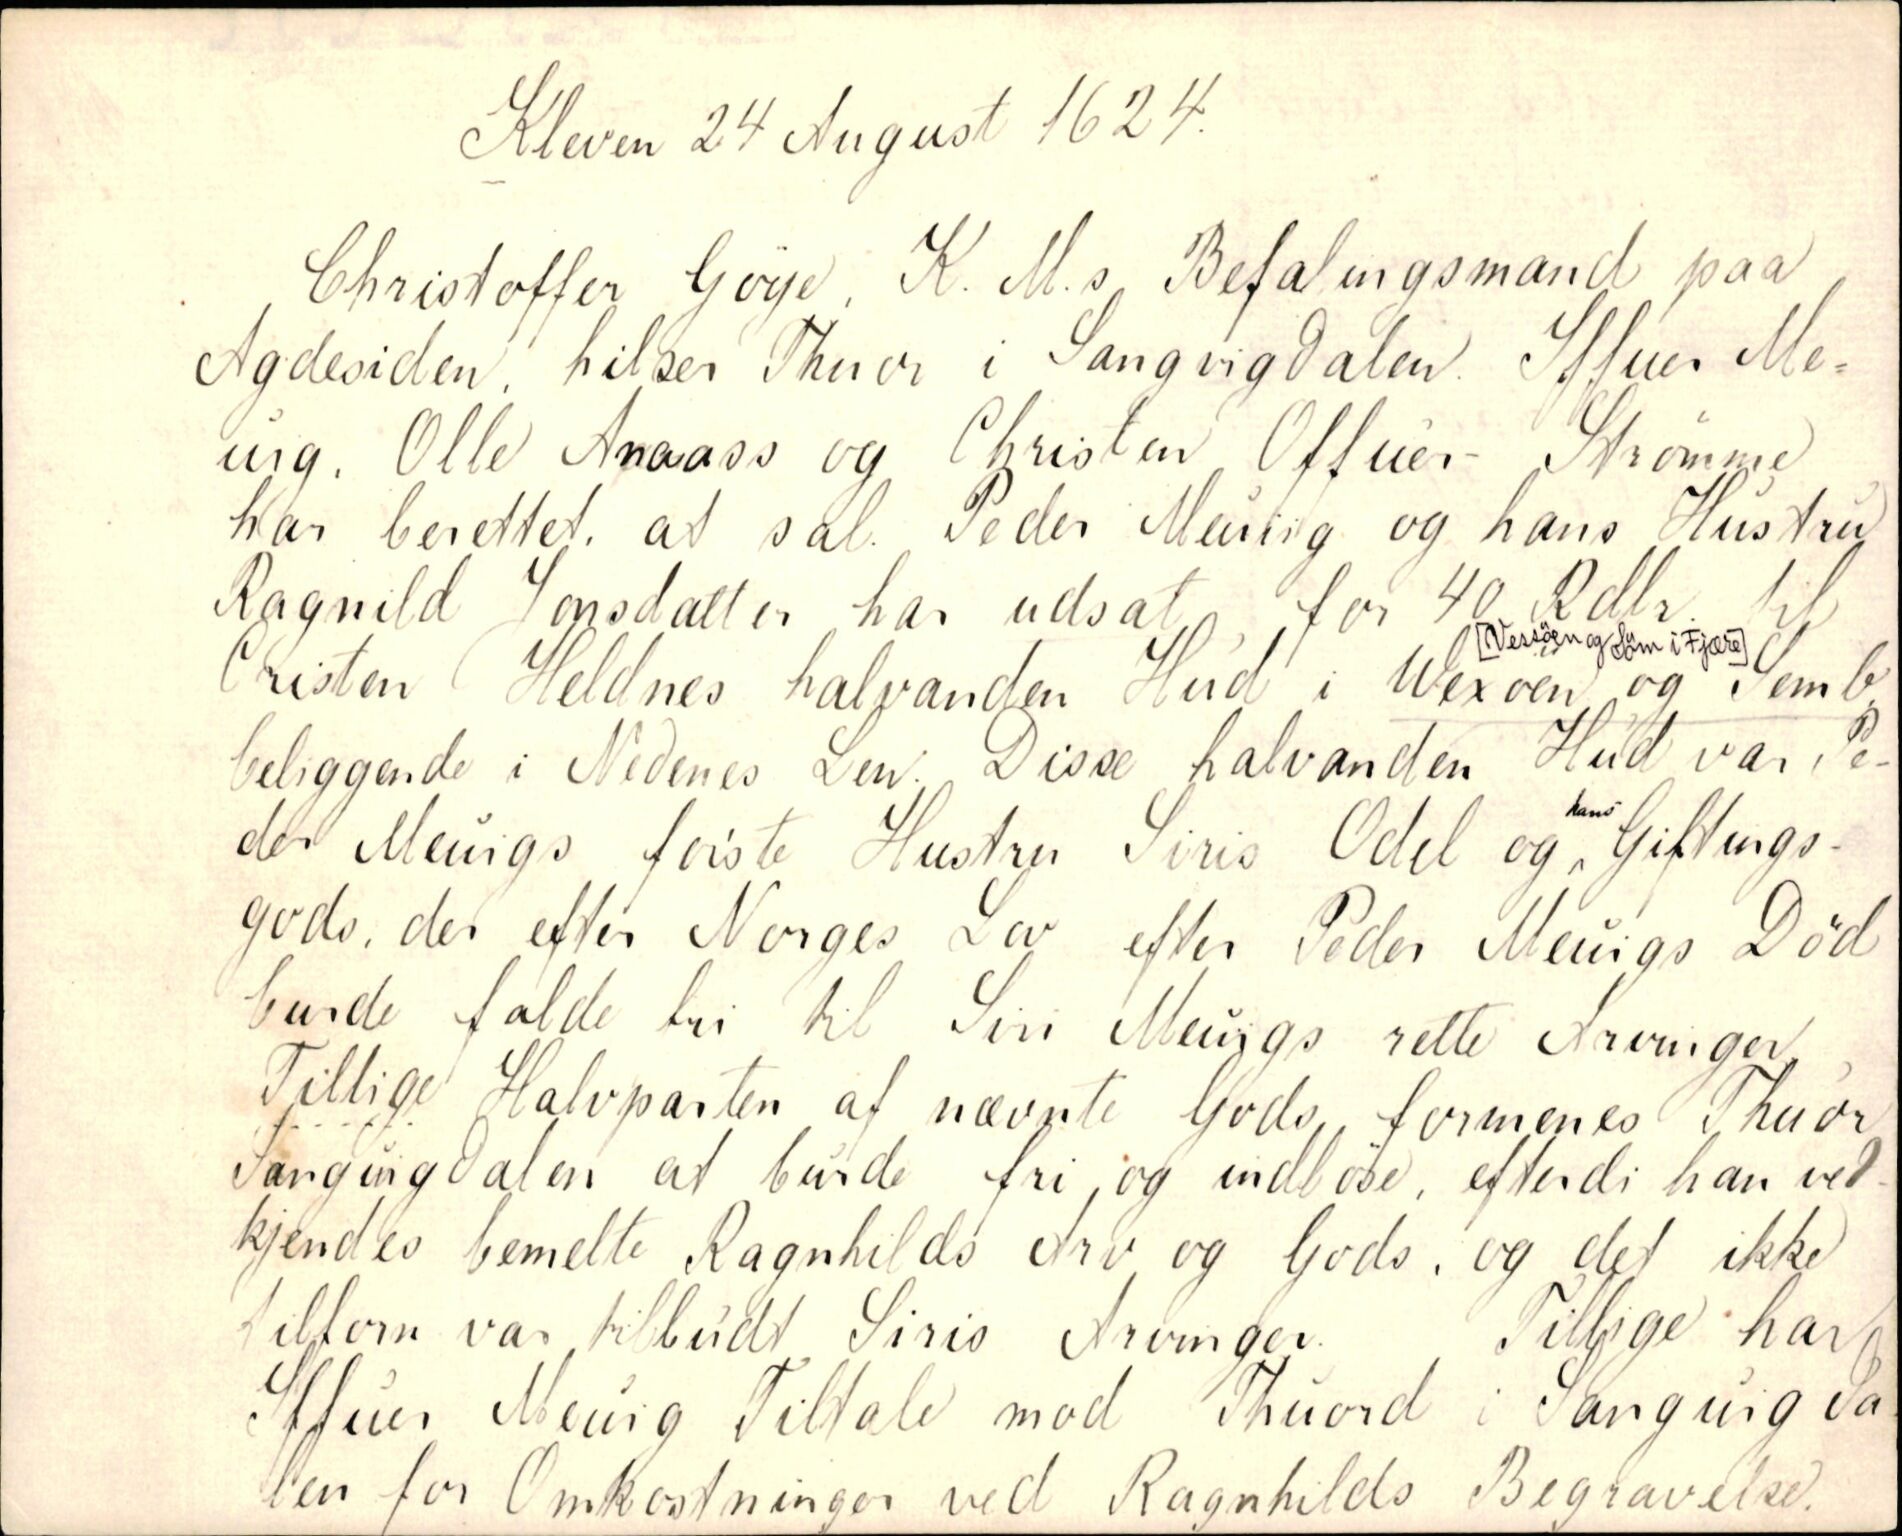 Kleven 24 August 1624.
Christoffer Göye, K. M.s Befalingsmand paa
Agdesiden, hilser Thuor i Sangvigdalen. Iffuer Me-
uig, Olle Anaass og Christen Offuer-Strömme
har berettet, at sal. Peder Meuiig og hans Hustru
Ragnild Jonsdatter har udsat for 40 Rdlr. til
[Vessöen og Söm i Fjære]
Cristen Heldnes halvanden Hud i Wexöen og Semb,
beliggende i Nedenes Len. Disse halvanden Hud var Pe-
der Meuigs förste Hustru Siris Odel og hans Giftings-
gods, der efter Norges Lov efter Peder Meuigs Död
burde falde fri til Siri Meuigs rette Arvinger,
Tillige Halvparten af nævnte Gods formenes Thuor
Sanguigdalen at burde fri og indlöse, efterdi han ved-
kjendes bemelte Ragnhilds Arv og Gods, og det ikke
tilforn var tilbudt Siris Arvinger. Tillige har
Iffuer Meuig Tiltale mod Thuord i Sanguigda-
len for Omkostninger ved Ragnhilds Begravelse.